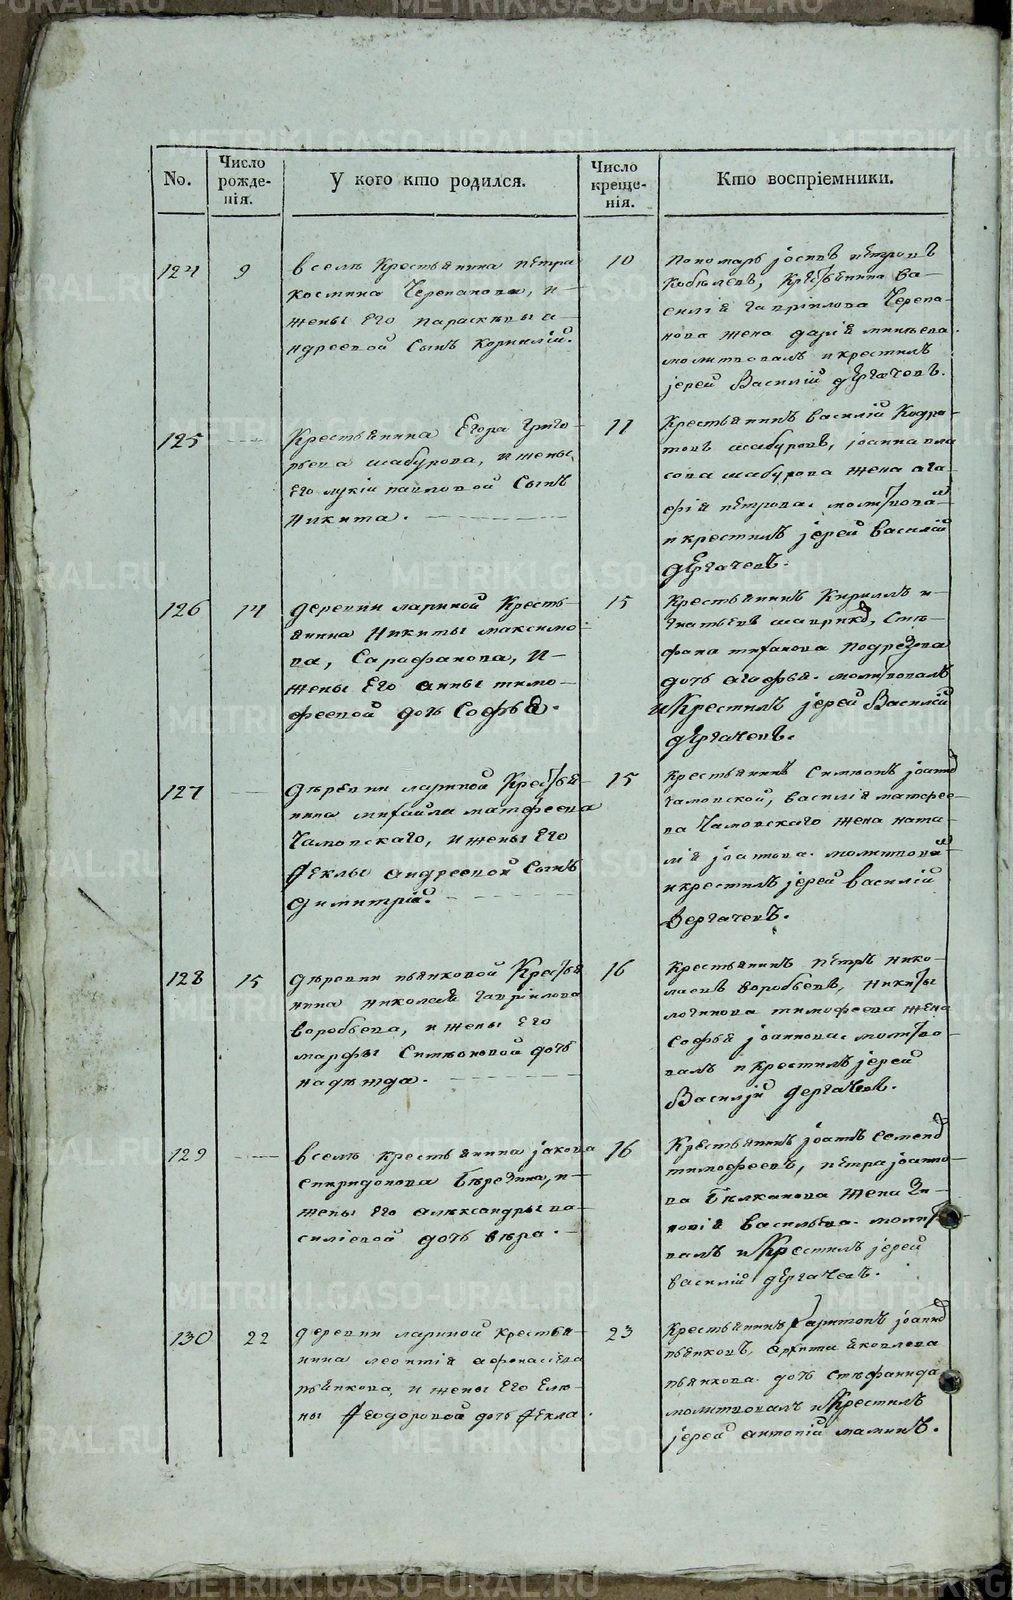 No.
Число рожде-нія.
У кого кто родился.
Число креще-нія.
Кто воспріемники.
124
9
в селѣ Крестьянина петра
космина Черепанова, и
жены Его параскевы а-
ндреевой Сынъ корнилій.
10
пономарь јосифъ петровъ
кобылевъ, крестьянина ва-
силія гавріилова Черепа-
нова жена дарія
молитвовалъ и крестилъ
јерей Василій дергачовъ.
125
Крестьянина Егора григо-
рьева шабурова, и жены
Его лукіи павловой Сынъ
Никита.
11
Крестьянинъ василій Кодра-
товъ шабуровъ, јоанна вла
сова шабурова жена ага-
фія петрова. молитвовалъ
и крестилъ јерей василій
дергачевъ.
126
14
деревни лариной Кресть-
янина Никиты максимо-
ва, Сарафанова, и
жены Его анны тимо-
феевой дочь Софья.
15
Крестьянинъ Кириллъ и-
гнатьевъ Сте-
фана тифанова подрезова
дочь агафья. молитвовалъ
и Крестилъ јерей Василій
дергачевъ.
127
деревни лариной Крестья
нина михаила матфеева
Чамовскаго, и жены Его
Феклы андреевой Сынъ
димитрій.
15
крестьянинъ Симеонъ јоанно
Чамовской, василія матфее
ва Чамовскаго жена ната-
лія молитвовалъ
и крестилъ јерей василій
Дергачевъ.
128
15
деревни пьянковой Крестья
нина николая гавріилова
воробьева, и жены Его
марфы Симеоновой дочь
надѣжда.
16
крестьянинъ петръ нико-
лаевъ воробьевъ, никиты
логинова тимофеева жена
Софья јоаннова. молитво-
валъ и крестилъ јерей
Василій дергачевъ.
129
в селѣ крестьянина јакова
Спиридонова Березина, и
жены Его александры ва-
силіевой дочь вѣра.
16
Крестьянинъ јоаннъ семено
тимофеевъ, петра јоанно-
ва Белканова жена Зи-
новія васильева. молит
валъ и Крестилъ јерей
василій дергачевъ.
130
22
деревни лариной крестья-
нина леонтія афонасіева
пьянкова, и жены Его Еле-
ны Феодоровой дочь Фекла.
23
Крестьянинъ Харитонъ јоанно
пьянковъ, яковлева
пьянкова дочь Стефанида
молитвовалъ и Крестилъ
јерей антоній маминъ.
METRIKI.GASO-URAL.RU